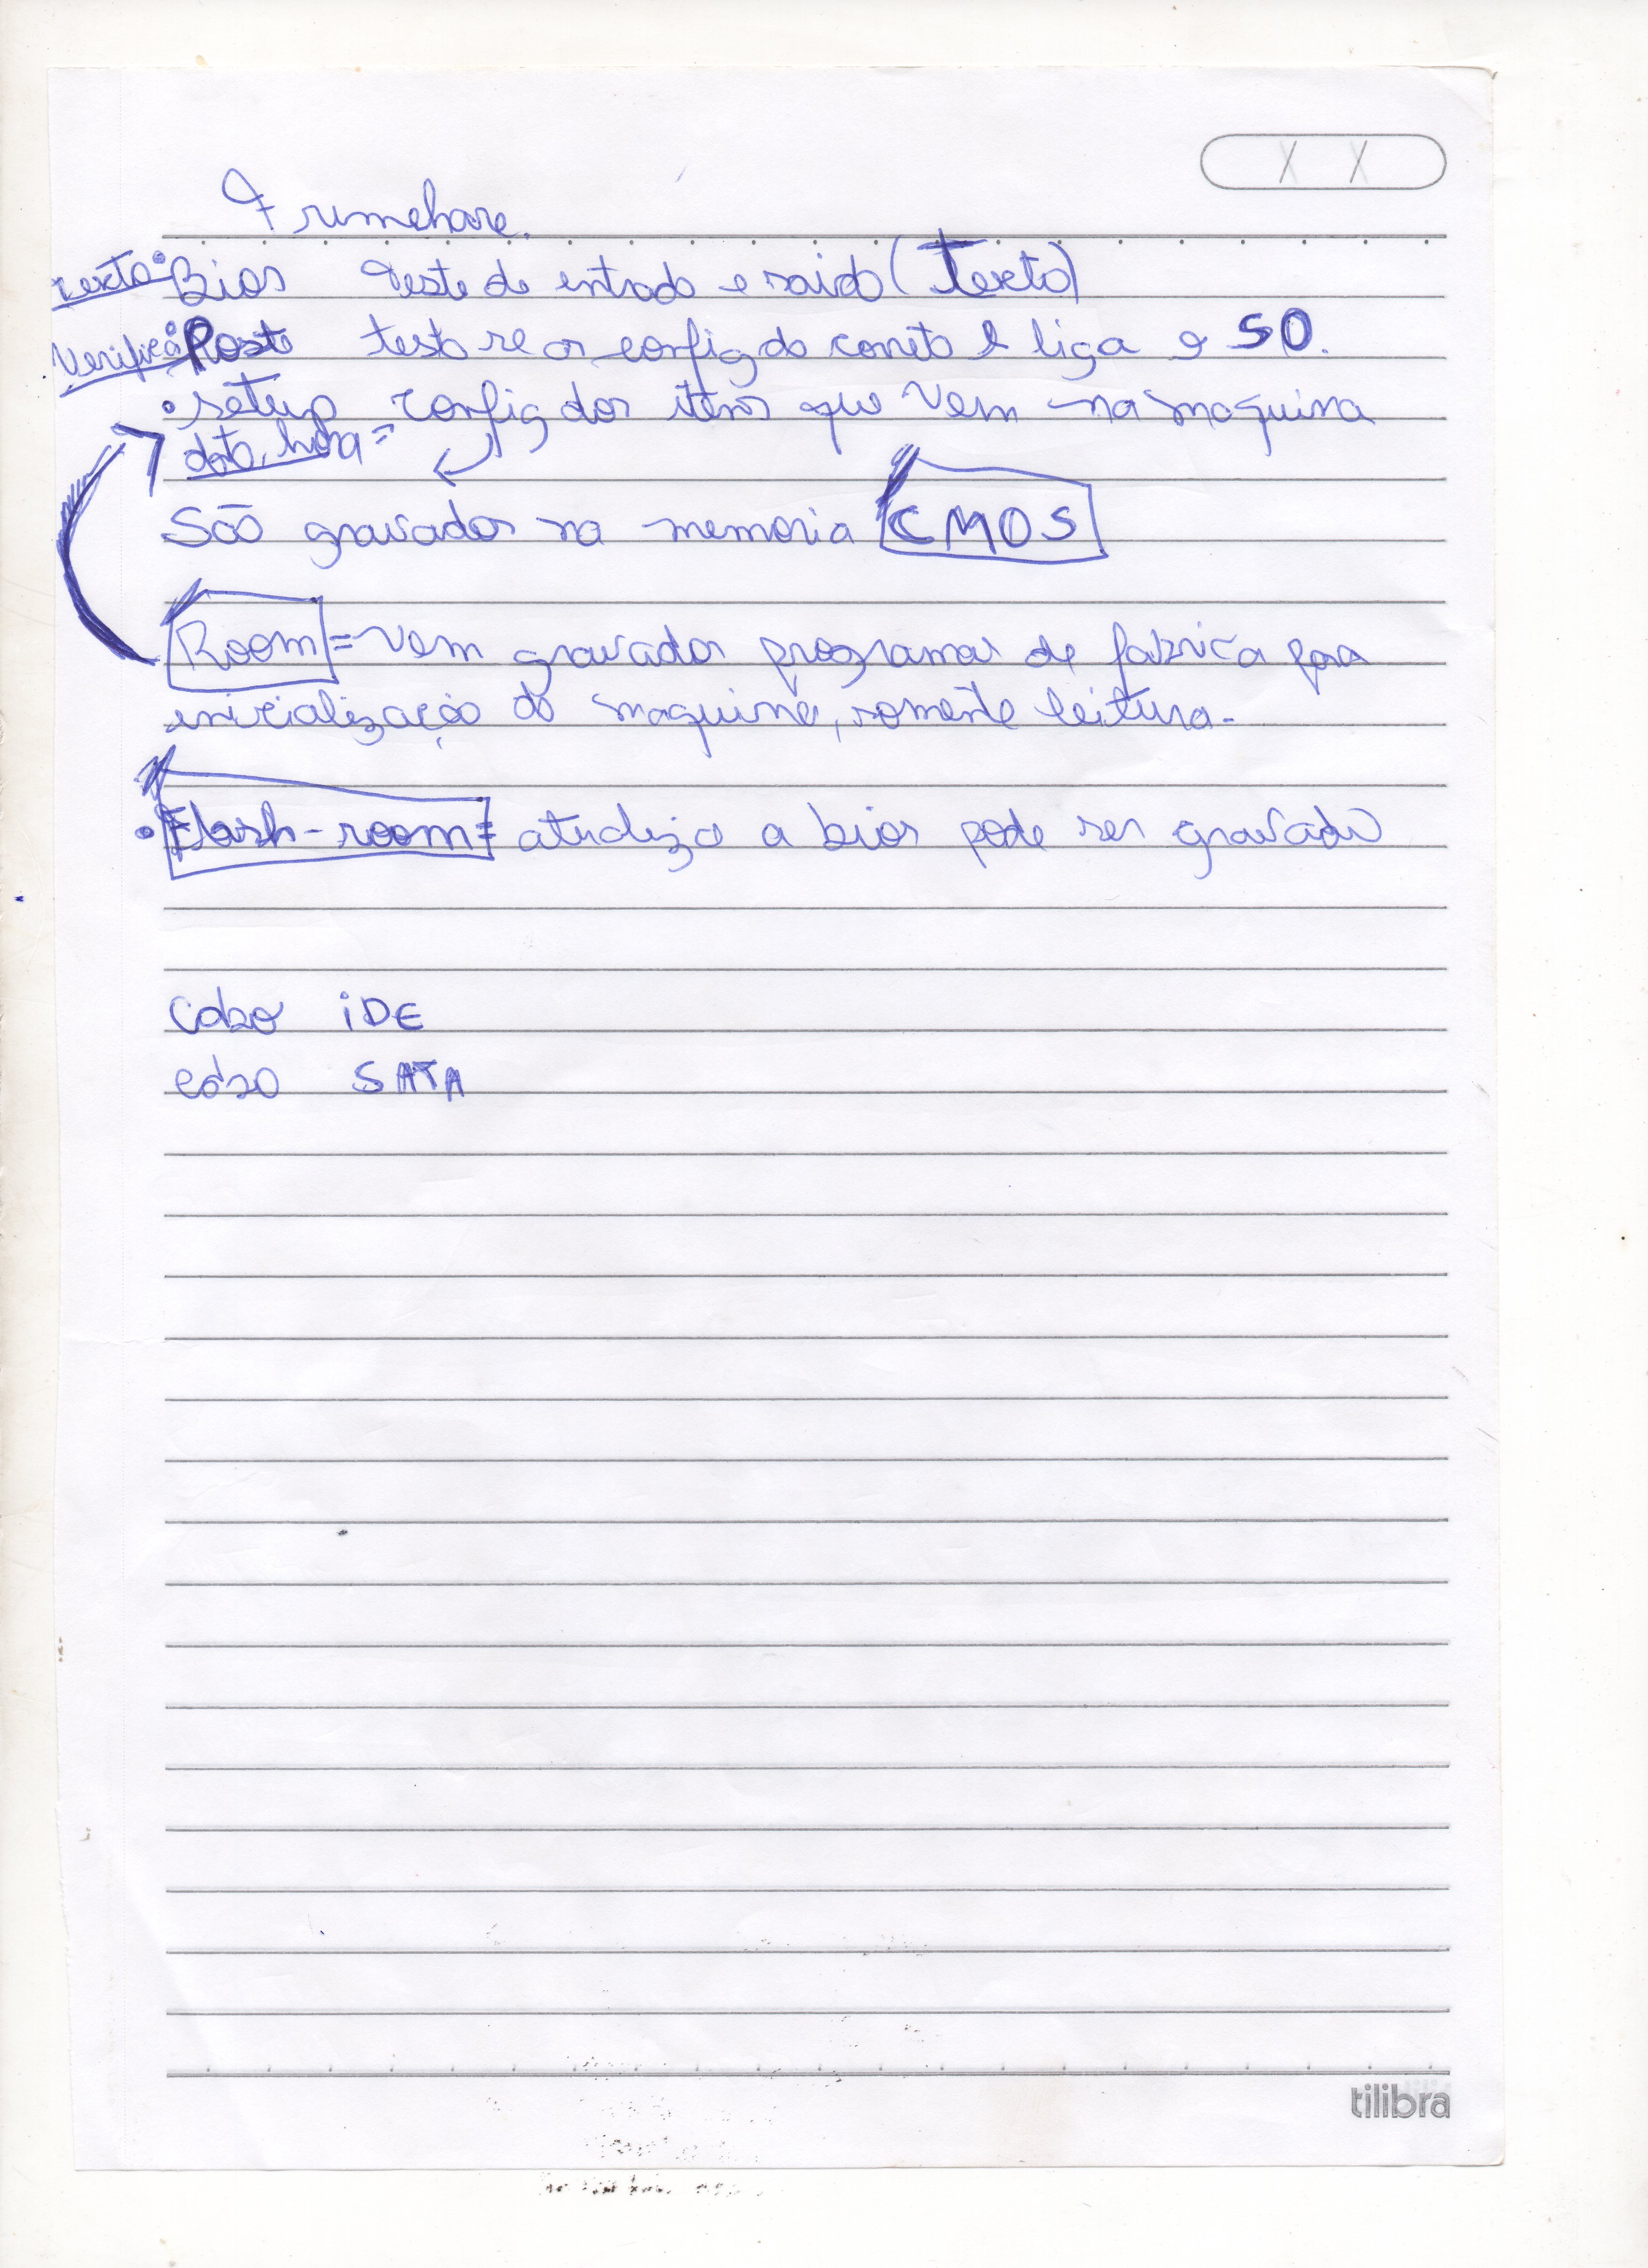 Frimehare.
texto • Bios teste de entrada e saida (Texto)
Verifica • Post testa se as config da correto e liga o SO.
• setup config dos itens que vem na maquina
data, hora =
São gravados na memoria CMOS
Room = Vem gravados programas de fabrica para
inicialização da maquina, somente leitura.
• Flash-room = atualiza a bios pode ser gravado
Cabo iDE
cabo SATA
tilibra